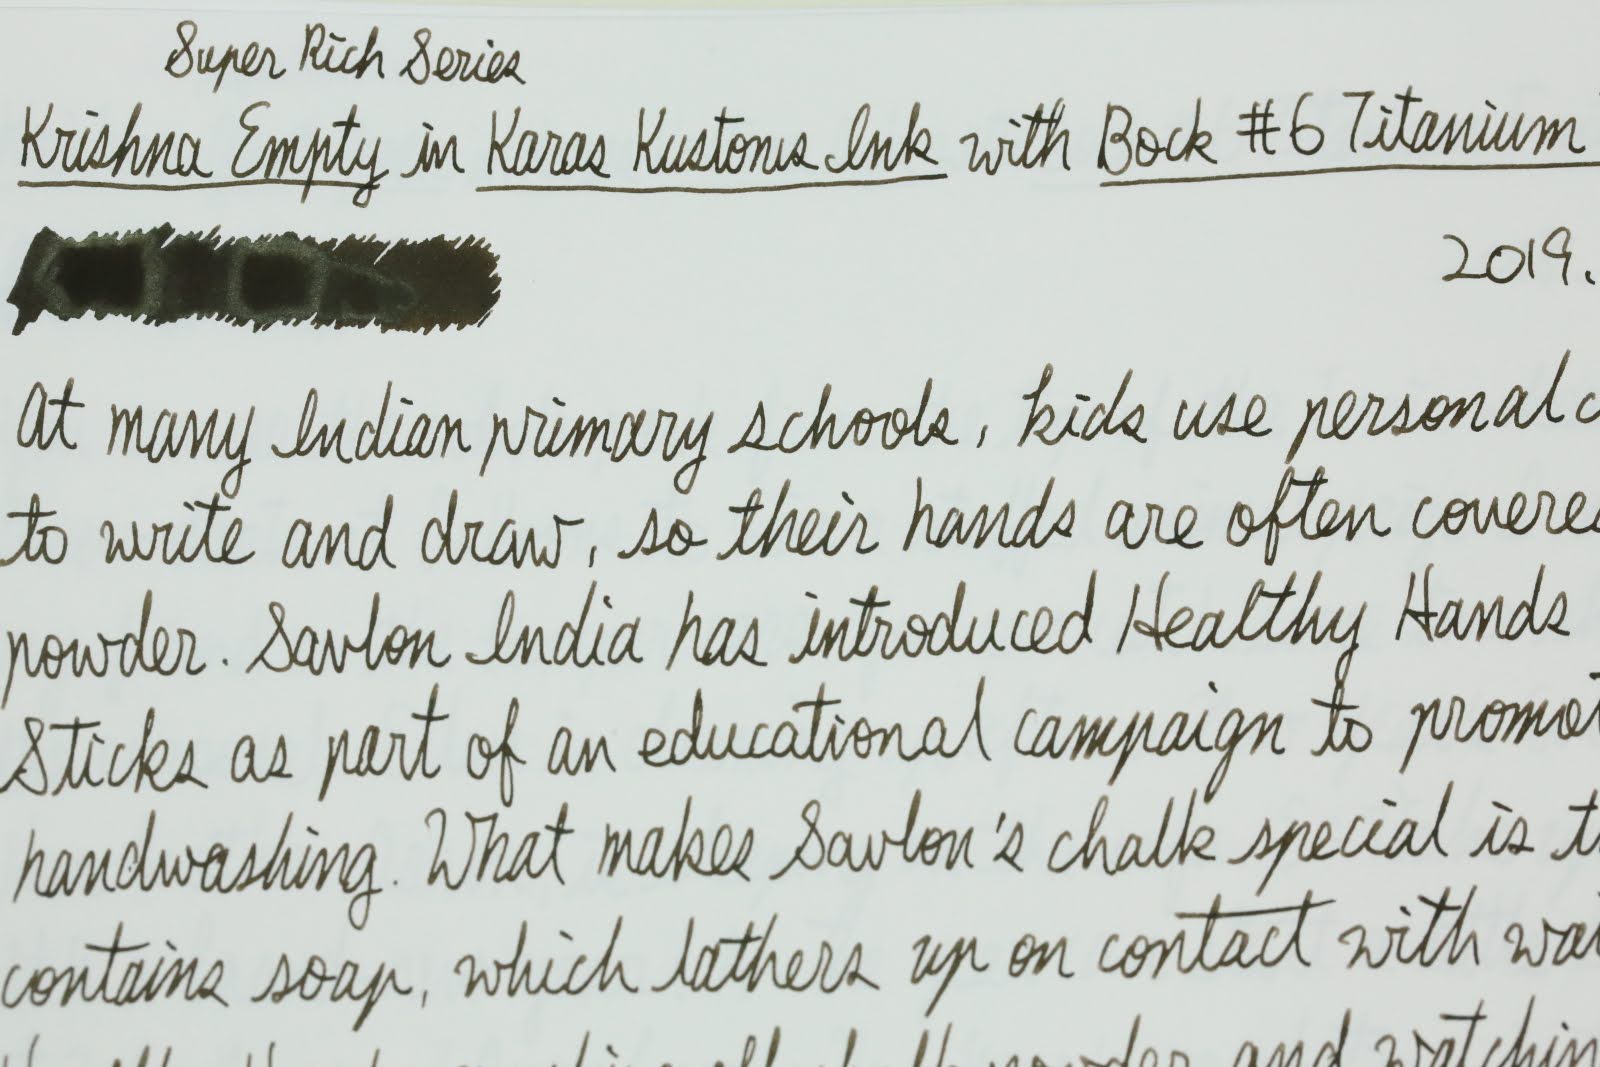 Super Rich Series
Krishna Empty in Karas Kustoms Ink with Bock #6 Titanium
2019.
At many Indian primary schools, kids use personal c
to write and draw, so their hands are often covered
powder. Savlon India has introduced Healthy Hands
Sticks as part of an educational campaign to promot
handwashing. What makes Savlon's chalk special is t
contains soap, which lathers up on contact with wat
powder and watchin